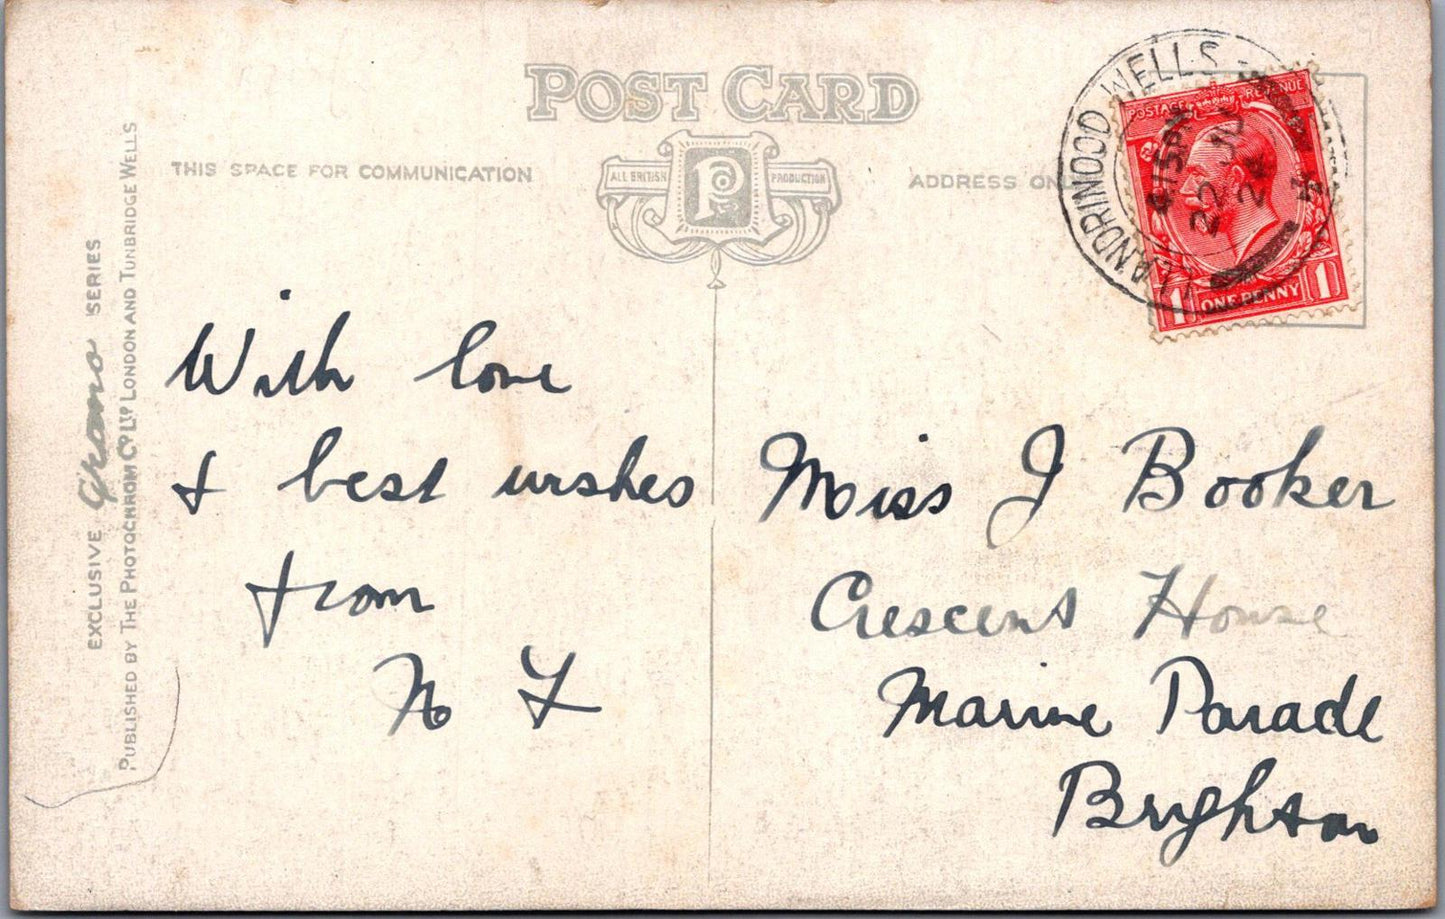 POST CARD
THIS SPACE FOR COMMUNICATION
ALL BRITISH PRODUCTION
P
ADDRESS ON
LLANDRINDOD WELLS
4 15 PM
22 JUL
24
POSTAGE REVENUE
1 ONE PENNY 1
EXCLUSIVE Grano SERIES
PUBLISHED BY THE PHOTOCHROM CO LTD LONDON AND TUNBRIDGE WELLS
With love
& best wishes
from
N F
Miss J Booker
Crescent House
Marine Parade
Brighton